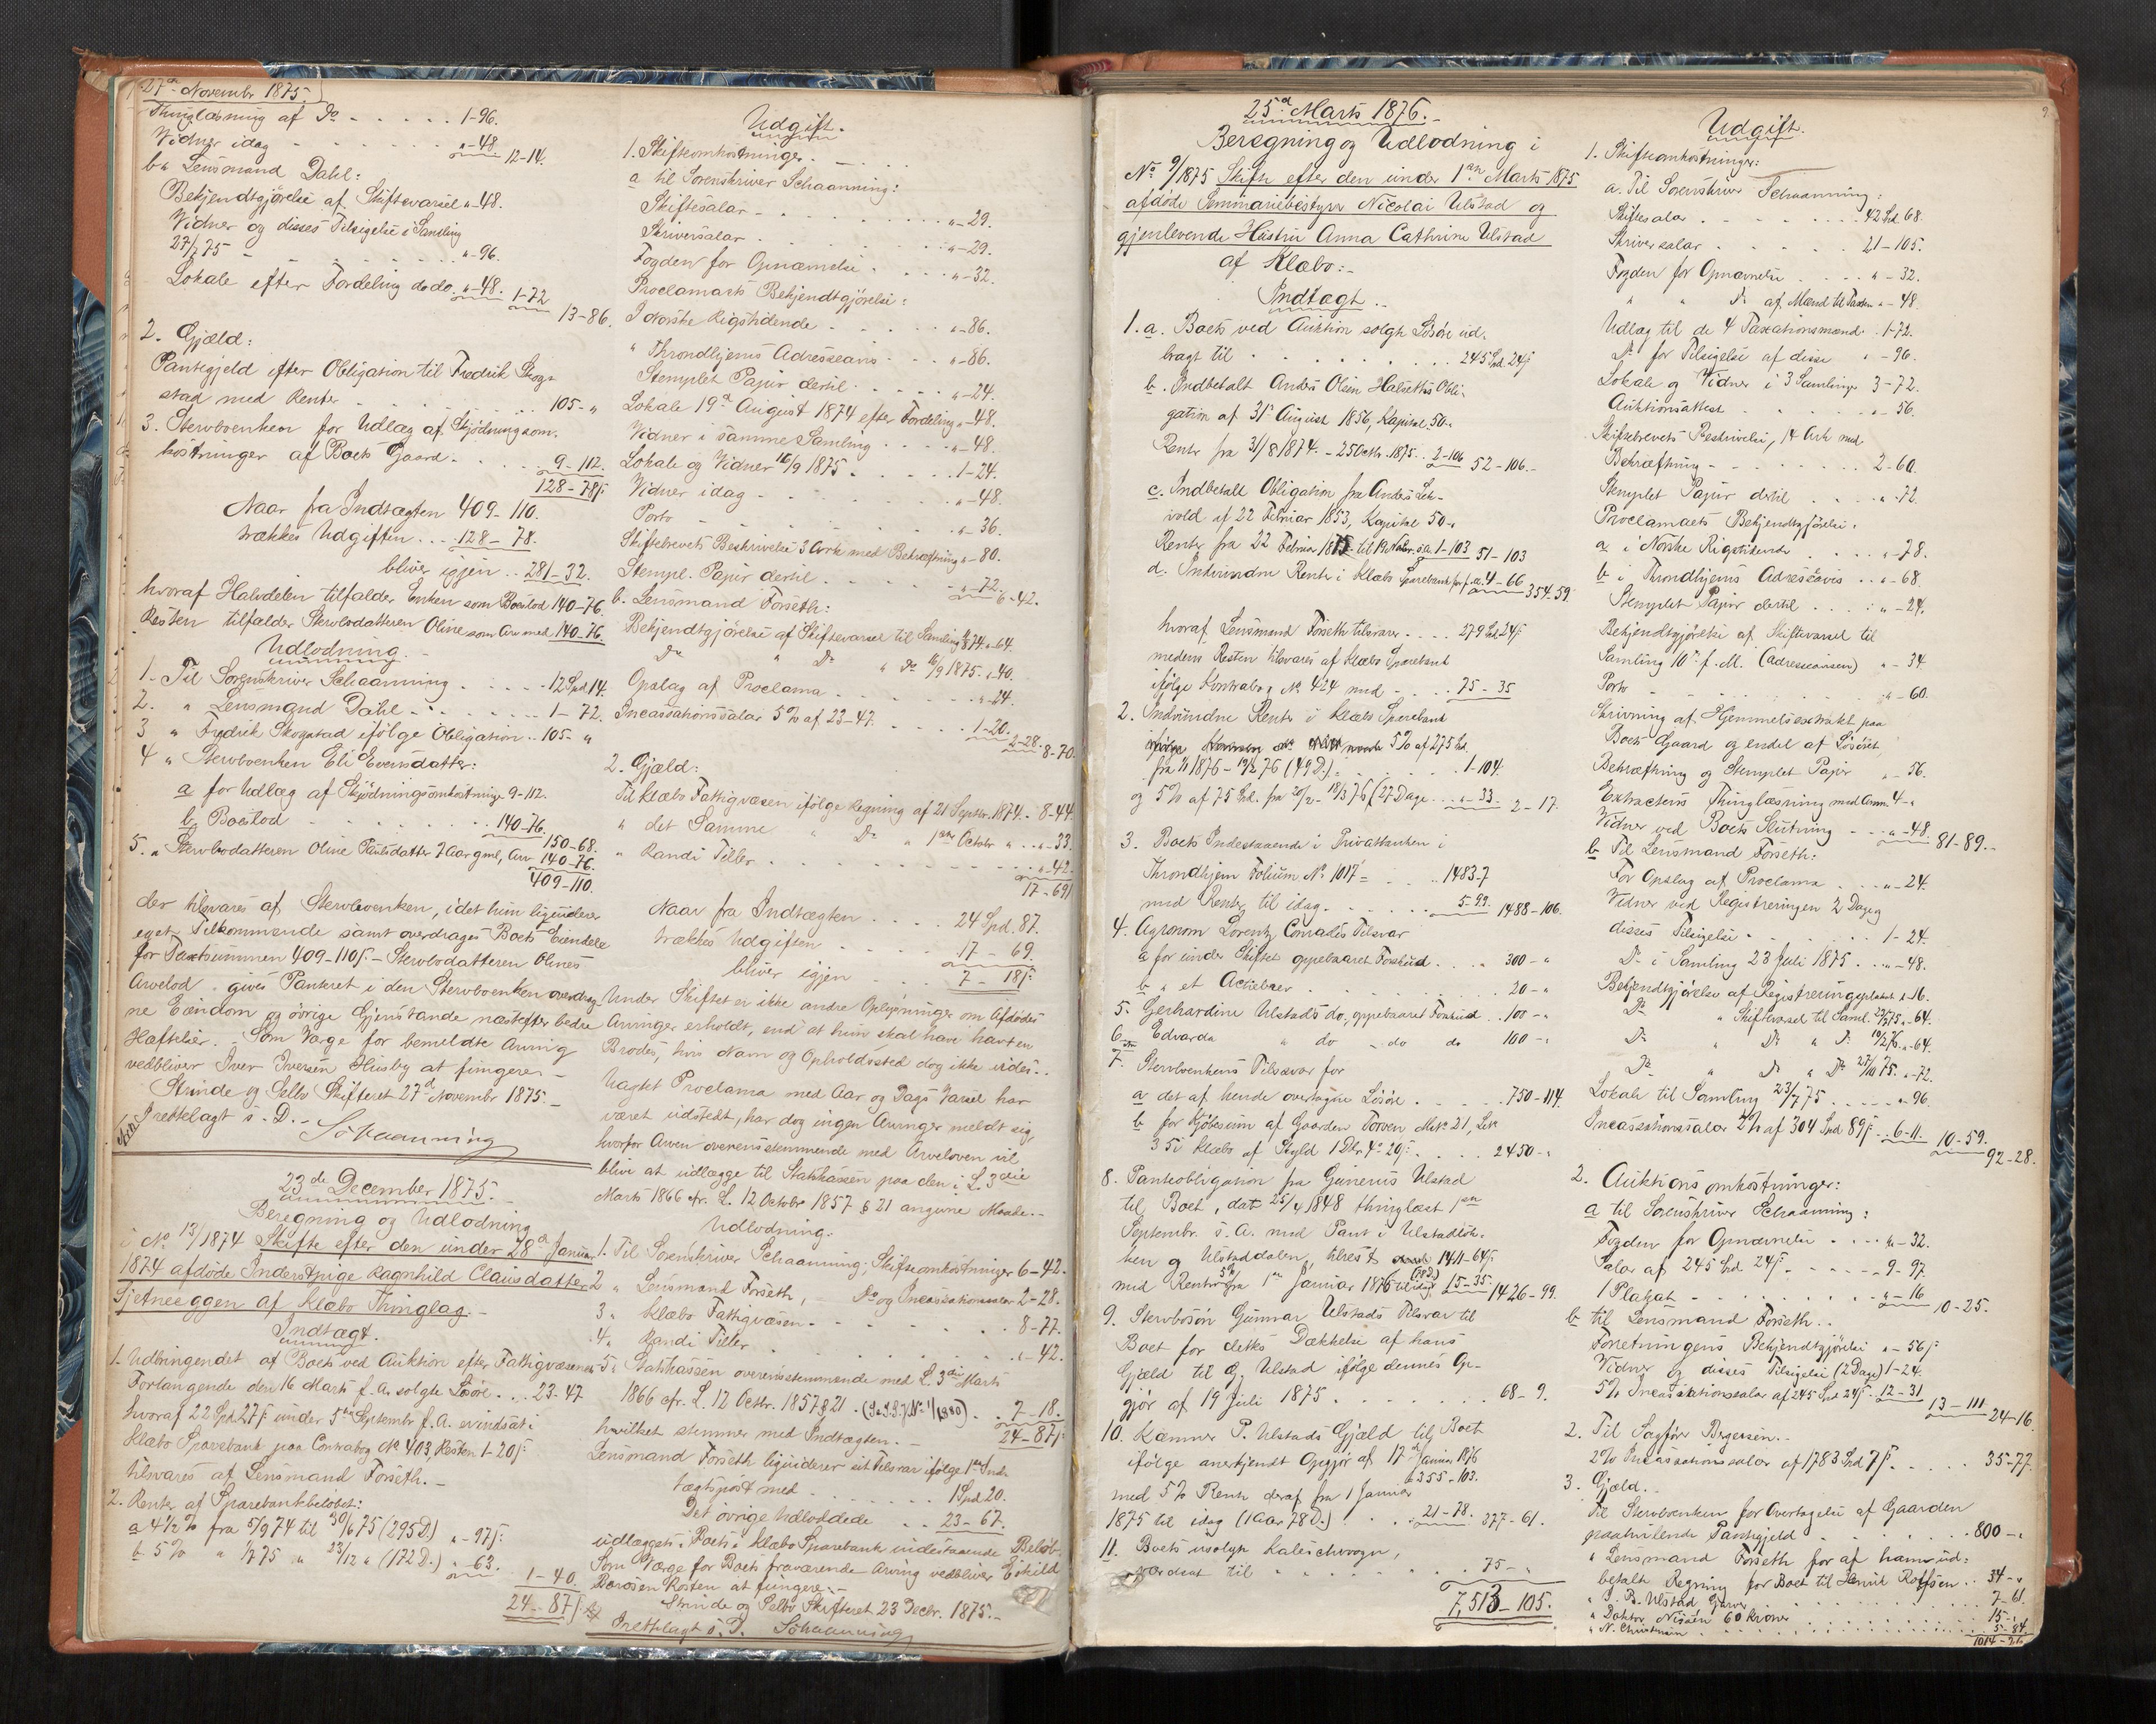 27de Novembr 1875.
Thinglæsning af Do - - - - - 1-96.
Vidner idag - - - - - - „-48. 12-14.
b „ Lensmand Dahl:
Bekjendtgjörelse af Skiftevarsel „-48.
Vidner og disses Tilsigelse i Samling
27/7 75 - - - - - - - „-96.
Lokale efter Fordeling do do. „-48. 1-72
13-86.
2. Gjæld:
Pantegjeld efter Obligation til Fredrik Skog-
stad med Renter - - - - - - 105- „
3. Stervboenken for Udlæg af Skjödningsom-
kostninger af Boets Gaard - - - 9-112.
128-78ſ:
Naar fra Indtægten 409-110.
trækkes Udgiften - - - 128-78.
bliver igjen . . 281-32.
hvoraf Halvdelen tilfalder Enken som Boeslod 140-76.
Resten tilfalder Stervbodatteren Oline som Arv med 140-76.
Udlodning.
1. Til Sorenskriver Schaanning - - - - - 12 Spd 14.
2. „ Lensmand Dahl - - - - - - - 1-72.
3 „ Fredrik Skogstad ifölge Obligation . . 105- „
4 „ Stervboenken Eli Evensdatter:
a for Udlæg af Skjödningsomkostninger 9-112.
b. Boeslod - - - - - - - 140-76.
150-68.
5. „ Stervbodatteren Oline Paulsdatter 7 Aar gml, Arv 140-76.
409-110.
der tilsvares af Stervboenken, idet hun ligviderer
eget Tilkommende samt overdrages Boets Eiendele
for Taxtsummen 409-110ſ. - Stervbodatteren Olines
Arvelod gives Panteret i den Stervboenken overdrag-
ne Eiendom og övrige Gjenstande næstefter bedre
Heftelser. - Som Værge for bemeldte Arving
vedbliver Iver Iversen Husby at fungere. -
Strinde og Selbo Skifteret 27de Novembr 1875. -
Fremlagt s. D. - Schaanning
23de December 1875. -
Beregning og Udlodning
i No 13/1874 Skifte efter den under 28de Januar
1874 afdöde Inderstpige Ragnhild Clausdatter
Sjetneeggen af Klæbo Thinglag. -
Indtægt.
1. Udbringendet af Boets ved Auktion efter Fattigvæsenets
Forlangende den 16 Marts f. A. solgte Lösöre . . . 23-47
hvoraf 22 Spd 27ſ: under 5te Septembr f. A. er indsat i
Klæbo Sparebank paa Contrabog No 403, Resten 1-20ſ:
tilsvares af Lensmand Forseth. -
2. Renter af Sparebankbelöbet:
a 4 1/2 % fra 5/9 74 til 30/6 75 (295 D.) „-97ſ:
b. 5 % „ 1/7 75 „ 23/12 „ (172 D.) „-63.
1-40.
24-87ſ:
Udgift.
1. Skifteomkostninger. - - - -
a til Sorenskriver Schaanning:
Skiftesalar - - - - - - - - „-29.
Skriversalar - - - - - - - „-29.
Fogden for Opnævnelse - - - - „-32.
Proclamaets Bekjendtgjörelse:
I Norske Rigstidende - - - - - „-86.
„ Throndhjems Adresseavis - - - „-86.
Stemplet Papir dertil - - - - „-24.
Lokale 19de August 1874 efter Fordeling „-48.
Vidner i samme Samling - - - „-48.
Lokale og Vidner 16/9 1875 - - - 1-24.
Vidner idag - - - - - - - „-48.
Porto - - - - - - - - - „-36.
Skiftebrevets Beskrivelse 3 Ark med Bekræftning „-80.
Stempl. Papir dertil - - - - - „-72. 6-42.
b. Lensmand Forseth:
Bekjendtgjörelse af Skiftevarsel til Samling 19/8 74. „-64.
Do „ Do „ Do 16/9 1875. „-40.
Opslag af Proclama - - - - - „-24.
Incassationssalar 5 % af 23-47 - - - 1-20.
2-28. 8-70.
2. Gjæld:
Til Klæbo Fattigvæsen ifölge Regning af 21 Septbr. 1874. - 8-44
„ det Samme „ Do „ 1ste Octobr „ . . „-33
„ Randi Tiller - - - - - - - „-42.
17-69ſ
Naar fra Indtægten - - - 24 Spd. 87.
trækkes Udgiften - - - 17-69.
bliver igjen - - - 7-18ſ:
Under Skiftet er ikke andre Oplysninger om Afdödes
Arvinger erholdt, end at hun skal have havt en
Broder, hvis Navn og Opholdssted dog ikke vides. .
Uagtet Proclama med Aar og Dags Varsel har
været udstedt, har dog ingen Arvinger meldt sig,
hvorfor Arven overensstemmende med Arveloven vil
blive at udlægge til Statskassen paa den i L. 3die
Marts 1866 cfr. L. 12 Octobr 1857 § 21 angivne Maade. -
Udlodning.
1. Til Sorenskriver Schaanning; Skifteomkostninger 6-42.
2 „ Lensmand Forseth, Do og Incassationssalar 2-28.
3 „ Klæbo Fattigvæsen - - - - - - 8-77.
4. „ Randi Tiller - - - - - - „-42.
5. „ Statskassen overensstemmende med L. 3die Marts
1866 cfr. L. 12 Octbr. 1857 § 21 . . 7-18.
hvilket stemmer med Indtægten. - 24-87ſ:
Lensmand Forseth ligviderer sit Tilsvar ifölge 1ste Ind-
tægtspost med - - - - - - 1 Spd 20.
Det övrige Udloddede . . 23-67.
udlægges i Boets i Klæbo Sparebank indestaaende Belöb.
Som Værge for Boets fraværende Arving vedbliver Eskild
Rosten at fungere. -
Strinde og Selbo Skifteret 23 Decbr. 1875. -
Fremlagt s. D. Schaanning
25de Marts 1876. -
Beregning og Udlodning i
No 9/1875 Skifte efter den under 1ste Marts 1875
afdöde Seminariebestyrer Nicolai Ulstad og
gjenlevende Hustru Anna Cathrine Ulstad
af Klæbo: -
Indtægt. -
1. a. Boets ved Auktion solgte Lösöre ud-
bragt til - - - - - - - 245 Spd. 24ſ
b. Indbetalt Anders Olsen Halsethes Obli-
gation af 31te August 1856, Kapital 50-„
Rente fra 31/8 1874. - 25 Octbr. 1875. . 2-106 52-106. -
c. Indbetalt Obligation fra Anders Leh-
vold af 22 Februar 1853, Kapital 50-„
Rente fra 22 Februar 1875 til 19 Novbr. s. A. 1-103 51-103
d. Indvundne Renter i Klæbo Sparebank for f. A. 4-66 354-59
hvoraf Lensmand Forseth tilsvarer - - - - 279 Spd. 24ſ:
medens Resten tilsvares af Klæbo Sparebank
ifölge Kontrabog No 424 med - - - - 75-35
2. Indvundne Renter i Klæbo Sparebank
5 % af 275 Spd.
fra 1/1 1876 - 19/2 76 (49 D.) - - - - 1-104.
og 5 % af 75 Spd. fra 20/2 - 18/3 76 (27 Dage . . . „-33. 2-17.
3. Boets Indestaaende i Privatbanken i
Throndhjem Folium No 1017 - - - 1483-7
med Renter til idag - - - - - 5-99. 1488-106.
4. Agronom Lorentz Conrads Tilsvar
a for under Skiftet oppebaaret Forskud - - - 300-„
b „ et Activkrav - - - - - - - 20-„
5. Gerhardine Ulstads do, oppebaaret Forskud . . 100-„
6. Edvarda „ do - do do 100-„
7. Stervboenkens Tilsvar for
a det af hende overtagne Lösöre - - - - 750-114.
b for Kjöbesum af Gaarden Torven Mt.No 21, Lb.No
35 i Klæbo af Skyld 1 Dlr. 4 Ort 20ſ: - - - - 2450-„
8. Panteobligation fra Gunerius Ulstad
til Boet, dat. 25/4 1848 thinglæst 1ste
Septembr. s. A. med Pant i Ulstadlök-
ken og Ulstaddalen, tilrest 1411-64ſ:
med Renter 5% fra 1ste Januar 1876 til idag 15-35. 1426-99.
9. Stervbosön Gunnar Ulstads Tilsvar til
Boet for dettes Dækkelse af hans
Gjæld til G. Ulstad ifölge dennes Op-
gjör af 19 Juli 1875 - - - - - - - 68-9.
10. Kæmner P. Ulstads Gjæld til Boet
ifölge anerkjendt Opgjör af 17de Januar 1876
„ 255-103.
med 5 % Rente deraf fra 1 Januar
1875 til idag (1 Aar 78 D.) . . . 21-78. 277-61.
11. Boets usolgte Kaleschevogn,
værdsat til - - - - - - - 75-„
7,513-105.
Udgift.
1. Skifteomkostninger:
a. Til Sorenskriver Schaanning:
Skiftesalar - - - - - - - 42 Spd. 68.
Skriversalar - - - - - - 21-105.
Fogden for Opnævnelse - - - - „-32.
„ „ Do af Mænd til Taxten „-48.
Udlæg til de 4 Taxationsmænd . . 1-72.
Do for Tilsigelse af disse „-96.
Lokale og Vidner i 3 Samlinger 3-72.
Auktionsattest - - - - - - „-56.
Skiftebrevets Beskrivelse, 14 Ark med
Bekræftning - - - - - - 2-60.
Stemplet Papir dertil - - - - „-72.
Proclamaets Bekjendtgjörelse:
a i Norske Rigstidende - - - - „-78.
b i Throndhjems Adresseavis . . „-68.
Stemplet Papir dertil - - - - „-24.
Bekjendtgjörelse af Skiftevarsel til
Samling 10de f. M. (Adresseavisen) „-34.
Porto - - - - - - - - „-60.
Skrivning af Hjemmelsextrakt paa
Boets Gaard og endel af Lösöret,
Bekræftning og Stemplet Papir „-56.
Extractens Thinglæsning med Anm. 4-„
Vidner ved Boets Slutning - - - „-48. 81-89. -
b Til Lensmand Forseth:
For Opslag af Proclama - - - „-24.
Vidner ved Registreringen 2 Dage og
disses Tilsigelse - - - - - 1-24.
Do i Samling 23 Juli 1875 . . . „-48.
Bekjendtgjörelse af Registreringsplakat „-16.
Do „ Skiftevarsel til Saml. 23/7 75 „-64.
Do „ Do „ Do 10/2 76. „-64.
Do „ Do „ Do 27/10 75. „-72.
Lokale til Samling 23/7 75 - - - - - „-96.
Incassationssalar 2 % af 304 Spd 89ſ: . . 6-11. 10-59.
92-28.
2. Auktionsomkostninger:
a til Sorenskriver Schaanning:
Fogden for Opnævnelse - - - „-32.
Salar af 245 Spd. 24ſ. - - - - - 9-97.
1 Plakat - - - - - - - - „-16 10-25.
b til Lensmand Forseth. .
Forretningens Bekjendtgjörelse „-56ſ:
Vidner og disses Tilsigelse (2 Dage) 1-24.
5 % Incassationssalar af 245 Spd 24ſ. . 12-31
13-111
24-16
2. Til Sagförer Bergersen. -
2 % Incassationssalar af 1783 Spd 7ſ: - - - - - 35-77.
3. Gjæld. -
Til Stervboenken for Overtagelse af Gaarden
paahvilende Pantegjeld - - - - - 800-„
„ Lensmand Forseth for af ham ud-
betalt Regning for Boet til Henrik Rolfsen . . 34-„
„ J. B. Ulstad Garver - - - - - 7-61.
„ Doktor Nissen 60 Kroner - - - - - 15-„
„ N. Christensen - - - - - - - 5-84.
1014-26